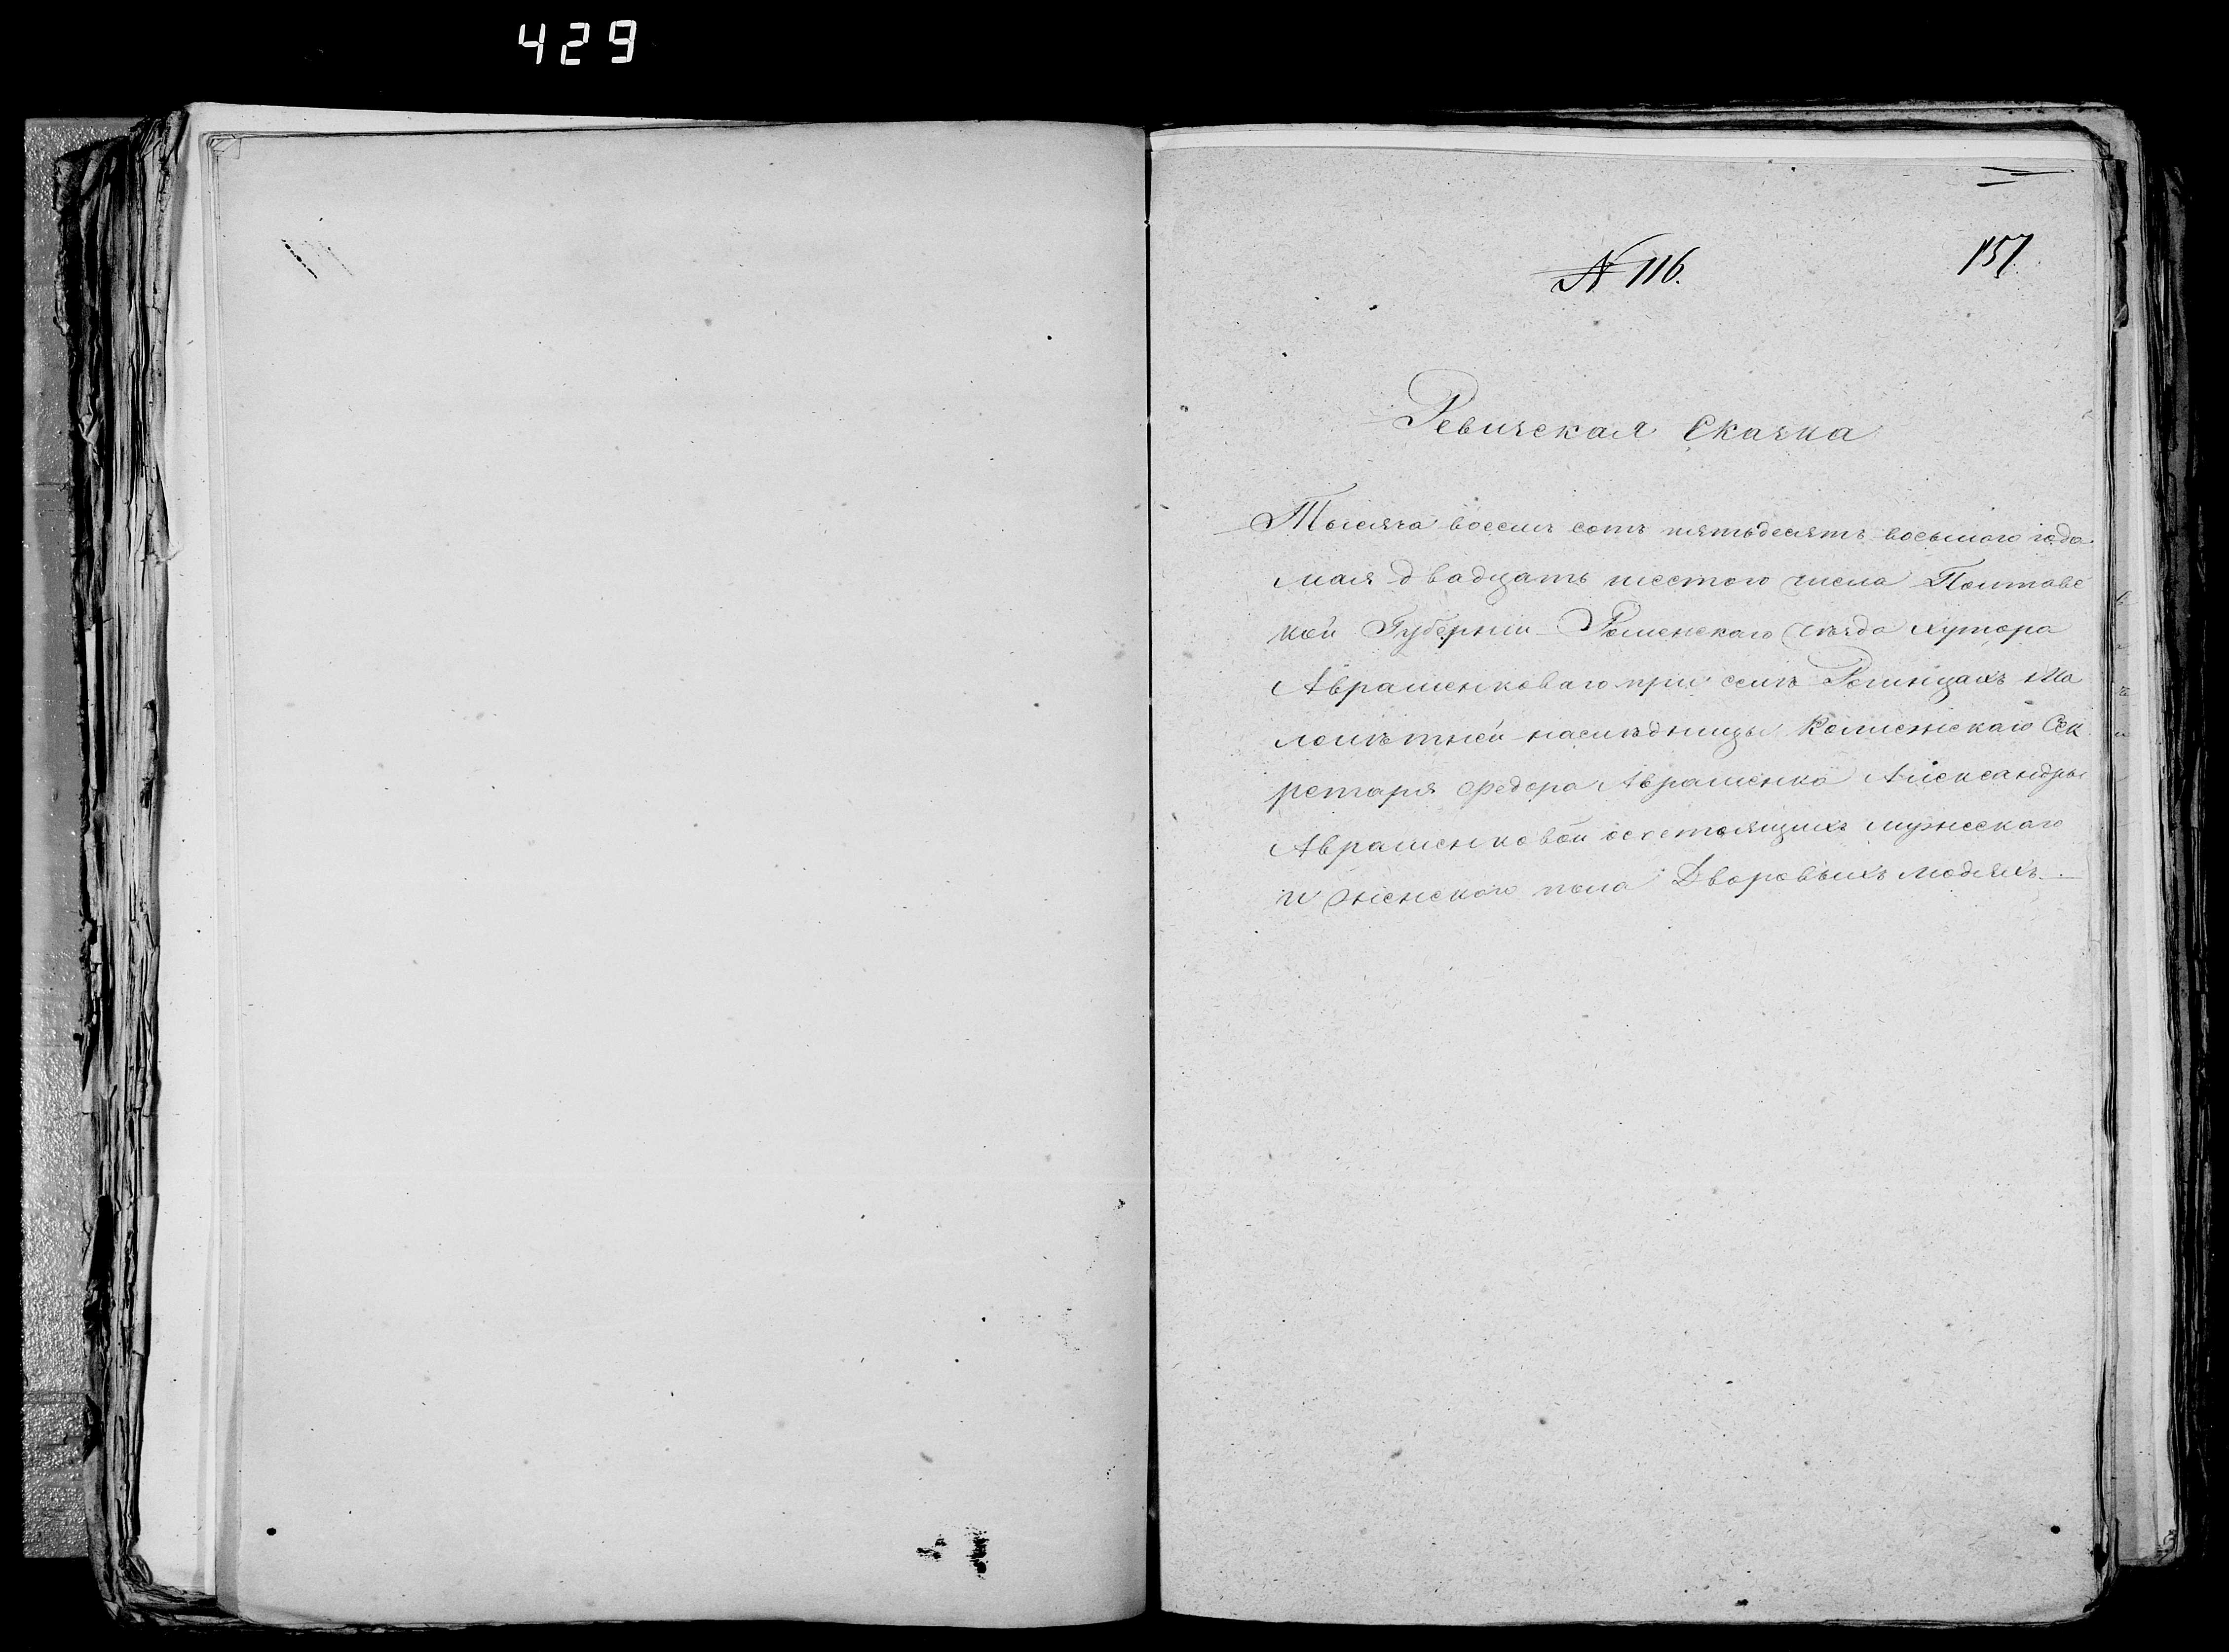 429
157
№ 116.
Ревизская Сказка
Тысяча восемь сотъ пятьдесятъ восьмого года
мая двадцать шестого числа Полтавс
кой Губерніи Роменскаго уѣзда хутора
Аврашенковаго при селѣ Рогинцахъ Ма
лолѣтней наслѣдницы Колежскаго Сек
ретаря Федора Аврашенка Александры
Аврашенковой о состоящихъ мужескаго
и женскаго пола Дворовыхъ людяхъ.